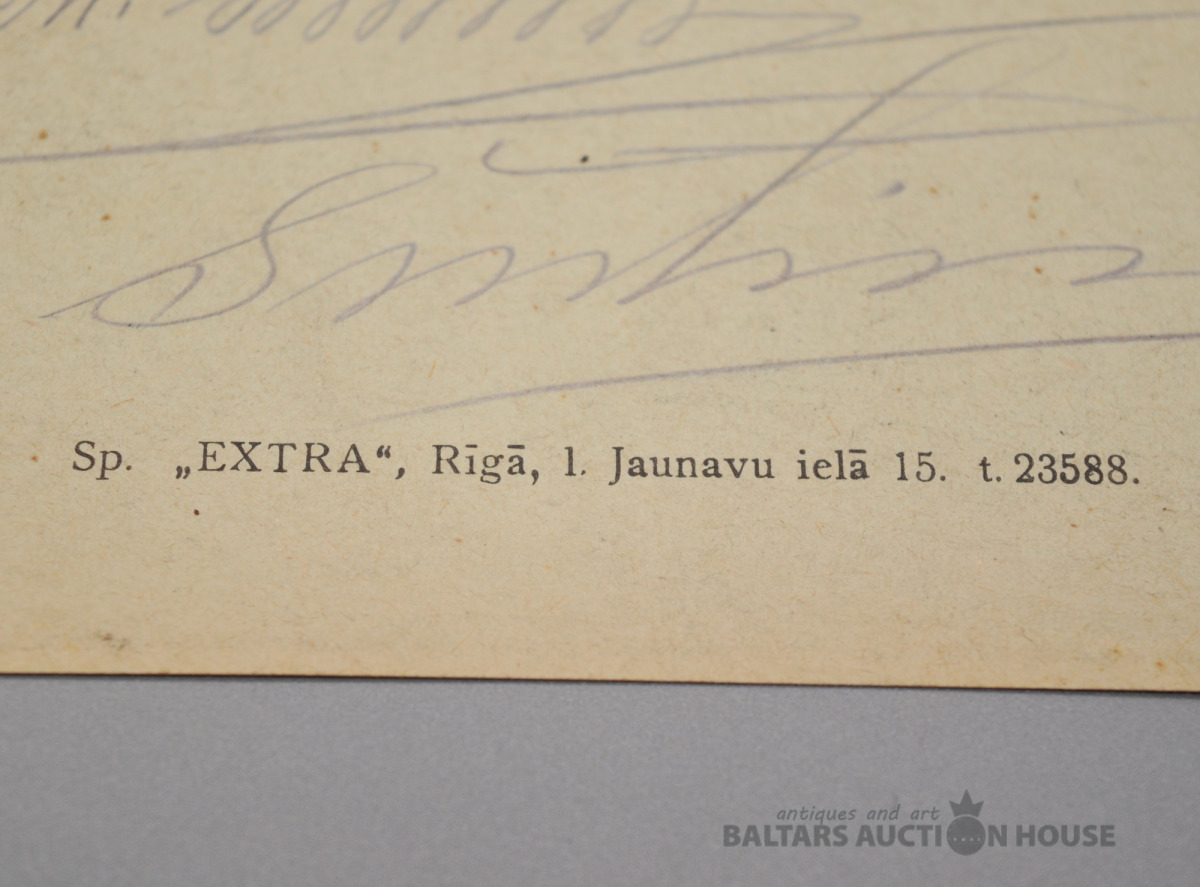 Sp. „EXTRA“, Rīgā, l. Jaunavu ielā 15. t. 23588.
antiques and art
BALTARS AUCTION HOUSE